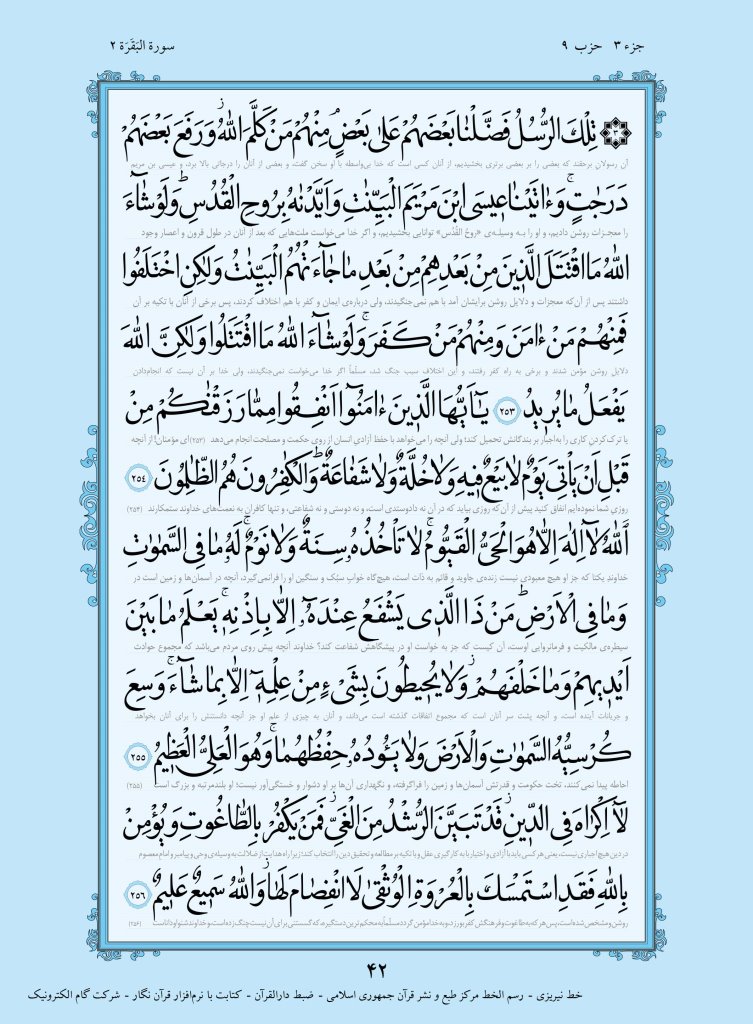 جزء ۳ حزب ۹
سورة البَقَرَة ۲
تِلْكَ الرُّسُلُ فَضَّلْنَا بَعْضَهُمْ عَلىٰ بَعْضٍ ۘ مِنْهُمْ مَنْ كَلَّمَ اللّٰهُ ۖ وَ رَفَعَ بَعْضَهُمْ
آن رسولان برخی‌شان که بعضی را بر بعضی برتری بخشیدیم، از آنان کسی است که خدا بی‌واسطه با او سخن گفت، و بعضی از آنان را درجاتی بالا برد، و عیسی بن مریم
دَرَجٰتٍ ۚ وَ ءَاتَيْنَا عيسَى ابْنَ مَرْيَمَ الْبَيِّنٰتِ وَ اَيَّدْنٰهُ بِروحِ الْقُدُسِ ۗ وَ لَوْ شَآءَ
را معجزات روشن دادیم، و او را به وسیله‌ی «روحُ القُدُس» توانایی بخشیدیم، و اگر خدا می‌خواست ملت‌هایی که بعد از آنان در طول قرون و اعصار وجود
اللّٰهُ مَا اقْتَتَلَ الَّذينَ مِنْ بَعْدِهِمْ مِنْ بَعْدِ ما جَآءَتْهُمُ الْبَيِّنٰتُ وَلٰكِنِ اخْتَلَفُوا
داشتند پس از آن‌که معجزات و دلایل روشن برایشان آمد با هم نمی‌جنگیدند، ولی درباره‌ی ایمان و کفر با هم اختلاف کردند، پس برخی از آنان با تکیه بر آن
فَمِنْهُمْ مَنْ ءَامَنَ وَ مِنْهُمْ مَنْ كَفَرَ ۚ وَ لَوْ شَآءَ اللّٰهُ مَا اقْتَتَلُوا وَلٰكِنَّ اللّٰهَ
دلایل روشن مؤمن شدند و برخی به راه کفر رفتند، و این اختلاف سبب جنگ شد، مسلّماً اگر خدا می‌خواست نمی‌جنگیدند، ولی خدا بر آن نیست که انجام‌دادن
يَفْعَلُ ما يُريدُ ﴿٢٥٣﴾ يٰٓاَيُّهَا الَّذينَ ءَامَنوٓا اَنْفِقوا مِمّا رَزَقْنٰكُمْ مِنْ
یا ترک کردن کاری را به‌اجبار بر بندگانش تحمیل کند؛ ولی آنچه را می‌خواهد با حفظ آزادی انسان از روی حکمت و مصلحت انجام می‌دهد (۲۵۳) ای مؤمنان! از آنچه
قَبْلِ اَنْ يَأْتِيَ يَوْمٌ لا بَيْعٌ فيهِ وَ لا خُلَّةٌ وَ لا شَفاعَةٌ ۗ وَ الْكٰفِرونَ هُمُ الظّٰلِمونَ ﴿٢٥٤﴾
روزی شما نموده‌ایم انفاق کنید پیش از آن‌که روزی بیاید که در آن نه دادوستدی است، و نه دوستی و نه شفاعتی، و تنها کافران به نعمت‌های خداوند ستمکارند (۲۵۴)
اَللّٰهُ لآ اِلٰهَ اِلّا هُوَ الْحَيُّ الْقَيّومُ ۚ لا تَأْخُذُهُ سِنَةٌ وَ لا نَوْمٌ ۚ لَهُ ما فِي السَّمٰوٰتِ
خداوند یکتا که جز او هیچ معبودی نیست زنده‌ی جاوید و قائم به ذات است، هیچ‌گاه خواب سبُک و سنگین او را فرانمی‌گیرد، آنچه در آسمان‌ها و زمین است در
وَ ما فِي الْاَرْضِ ۗ مَنْ ذَا الَّذي يَشْفَعُ عِنْدَهُٓ اِلّا بِاِذْنِهِ ۚ يَعْلَمُ ما بَيْنَ
سیطره‌ی مالکیت و فرمانروایی اوست، آن کیست که جز به خواست او در پیشگاهش شفاعت کند؟ خداوند آنچه پیش روی مردم می‌باشد که مجموع حوادث
اَيْديهِمْ وَ ما خَلْفَهُمْ ۖ وَ لا يُحيطونَ بِشَيْءٍ مِنْ عِلْمِهِٓ اِلّا بِما شَآءَ ۚ وَسِعَ
و جریانات آینده است، و آنچه پشت سر آنان است که مجموع اتفاقات گذشته است می‌داند، و آنان به چیزی از علم او جز آنچه دانستنش را برای آنان بخواهد
كُرْسِيُّهُ السَّمٰوٰتِ وَ الْاَرْضَ ۖ وَ لا يَـُٔودُهُ حِفْظُهُما ۚ وَ هُوَ الْعَلِيُّ الْعَظيمُ ﴿٢٥٥﴾
احاطه پیدا نمی‌کنند، تخت حکومت و قدرتش آسمان‌ها و زمین را فراگرفته، و نگهداری آن‌ها بر او دشوار و خستگی‌آور نیست؛ او بلندمرتبه و بزرگ است (۲۵۵)
لآ اِكْراهَ فِي الدّينِ ۖ قَدْ تَبَيَّنَ الرُّشْدُ مِنَ الْغَيِّ ۚ فَمَنْ يَكْفُرْ بِالطّاغوتِ وَ يُؤْمِنْ
در دین هیچ اجباری نیست، یعنی هر کسی باید با آزادی و اختیار با به کارگیری عقل و با تکیه بر مطالعه و تحقیق دین را انتخاب کند؛ زیرا راه هدایت از ضلالت به وسیله‌ی وحی و پیامبر و امام معصوم
بِاللّٰهِ فَقَدِ اسْتَمْسَكَ بِالْعُرْوَةِ الْوُثْقىٰ لَا انْفِصامَ لَها ۗ وَ اللّٰهُ سَميعٌ عَليمٌ ﴿٢٥٦﴾
روشن و مشخص شده است، پس هر که به طاغوت و فرهنگش کفر بورزد، و به خدا مؤمن گردد مسلّماً به محکم‌ترین دستگیره، که گسستنی برای آن نیست چنگ زده است، و خداوند شنوا و داناست (۲۵۶)
۴۲
خط نیریزی – رسم الخط مرکز طبع و نشر قرآن جمهوری اسلامی – ضبط دارالقرآن – کتابت با نرم‌افزار قرآن نگار – شرکت گام الکترونیک